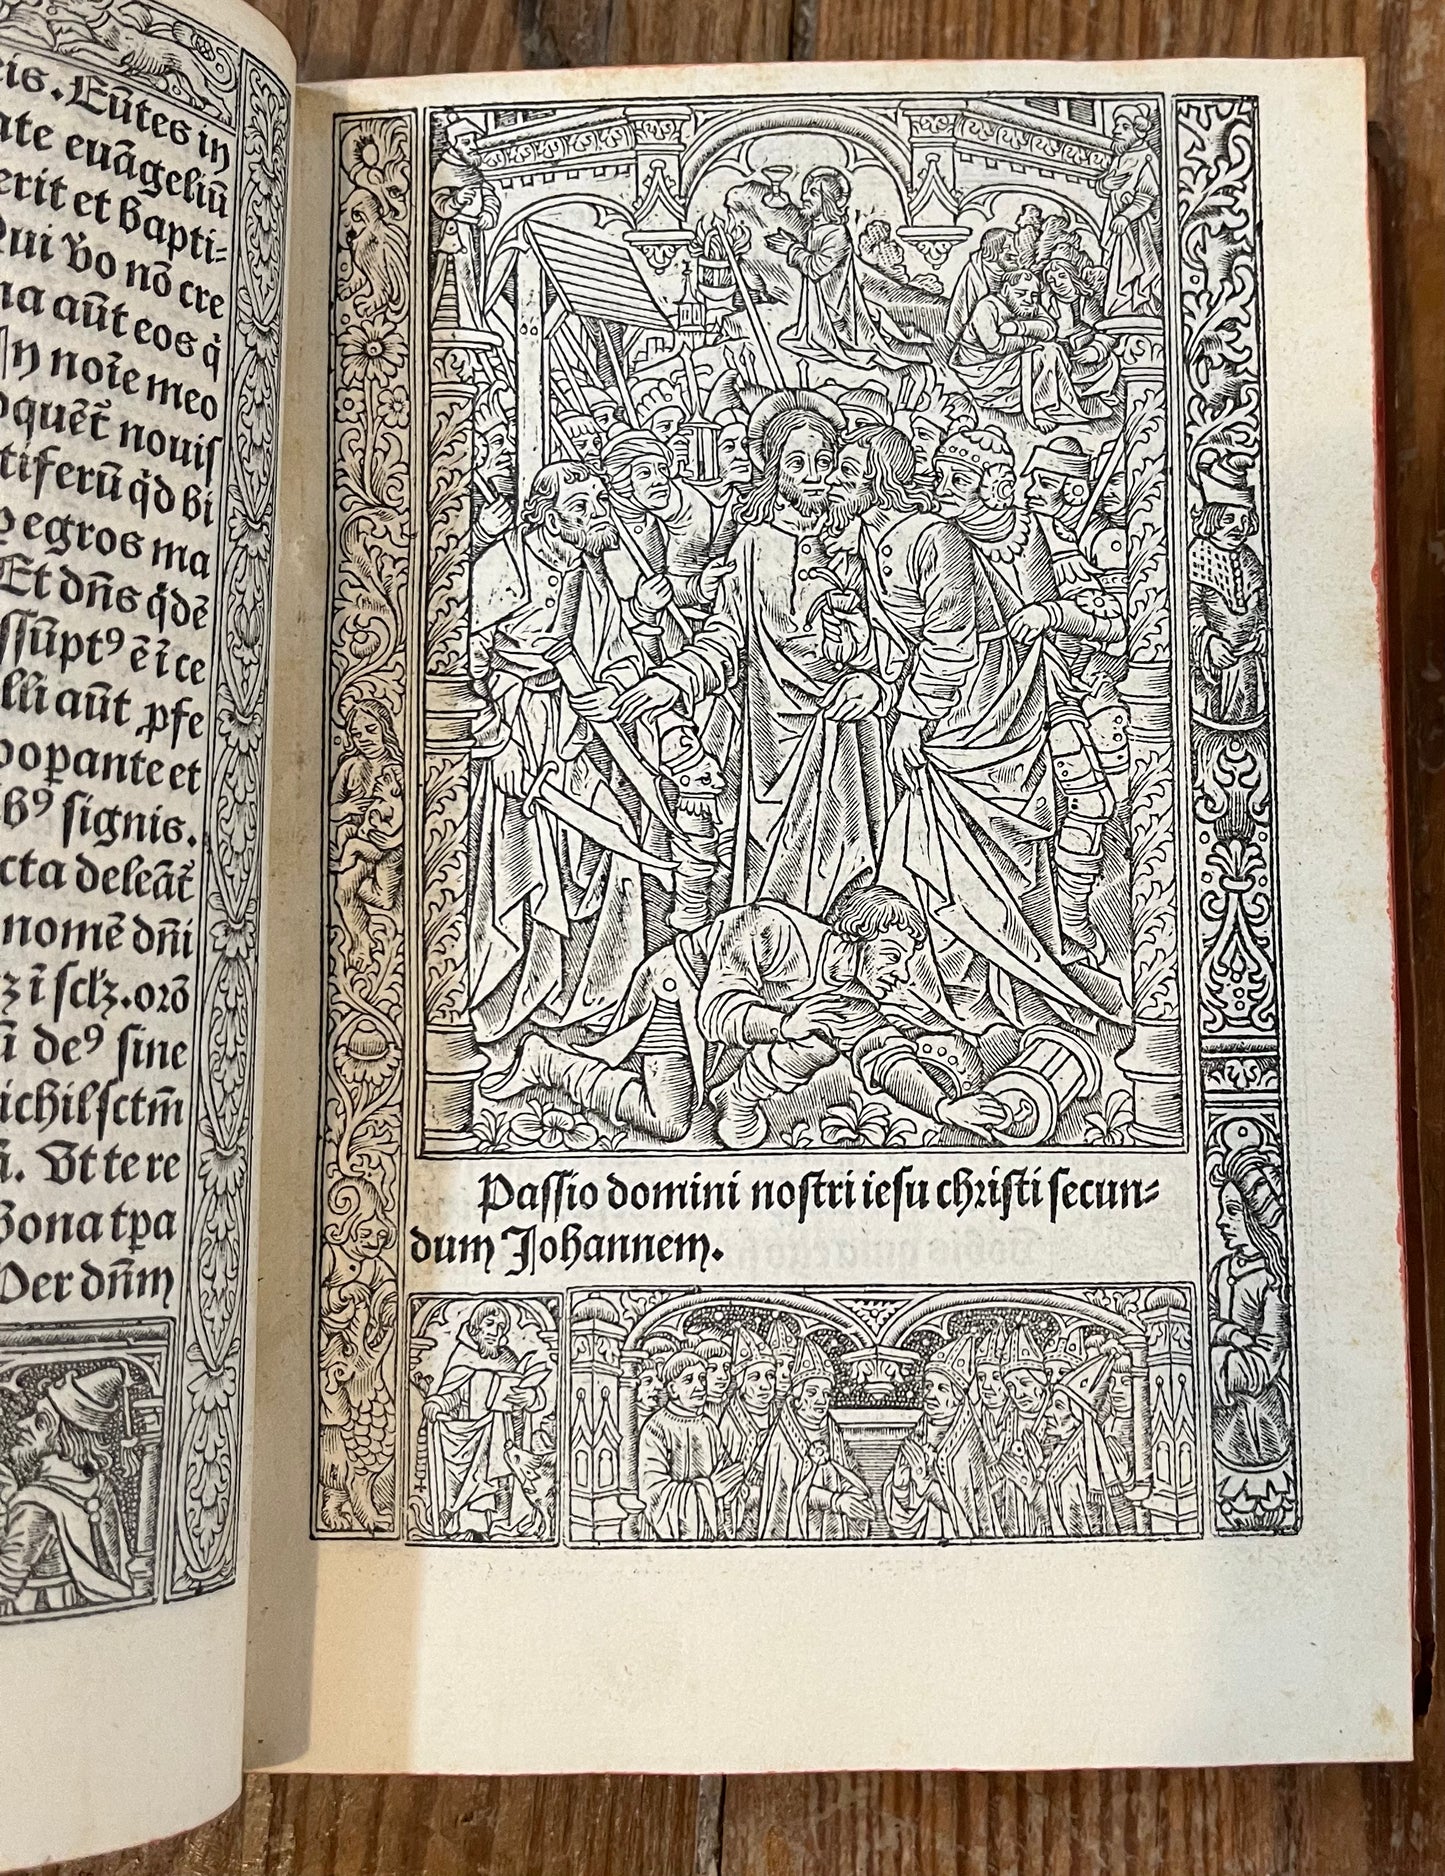 eis. Eūtes in
ate euāgeliū
erit et bapti=
Qui vo nō cre
na aūt eos q̇
In noīe meo
oquēt̄ nouis
tiferū q̇d bi
egros ma
Et dn̄s q̇dē
ssūptꝰ ē ī ce
lli aūt ꝓfe
ooꝑante et
ibꝰ signis.
cta deleāt̄
nomē dn̄i
ꝫ ī sclꝫ. orō
ū deꝰ sine
ichil sctm̄
ā. Vt te re
bona tꝑa
Per dn̄m
Passio domini nostri iesu christi secun=
dum Johannem.